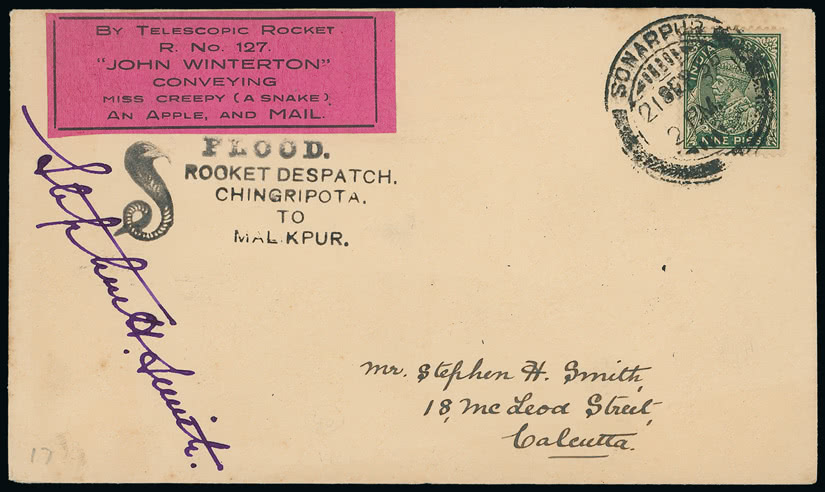 BY TELESCOPIC ROCKET
R. No. 127.
"JOHN WINTERTON"
CONVEYING
MISS CREEPY (A SNAKE)
AN APPLE, AND MAIL.
FLOOD.
ROOKET DESPATCH.
CHINGRIPOTA.
TO
MAL.KPUR.
SONARPUR
21 SEP 36
2 PM
INDIA POSTAGE
NINE PIES
Stephen H. Smith.
Mr. Stephen H. Smith,
18, McLeod Street,
Calcutta.
17